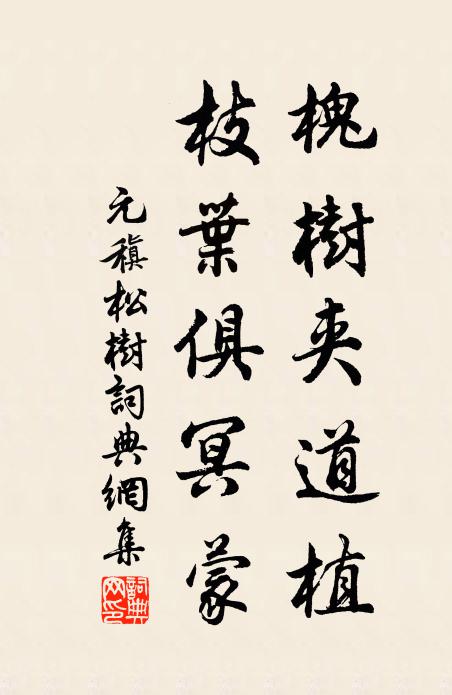 槐樹夾道植
枝葉俱冥蒙
元稹松樹詞典網集
詞典網印